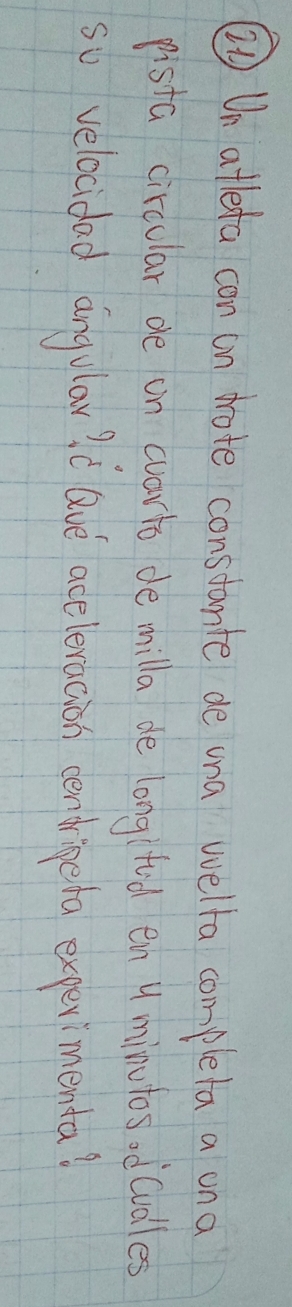 21) Un atleta con un trote constante de una vuelta completa a una
pista circular de un cuarto de milla de longitud en 4 minutos. ¿Cuál es
su velocidad ángular? ¿Qué aceleración centrípeta experimenta?